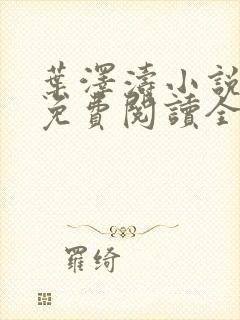 葉澤濤小說
免費閱讀全
羅綺